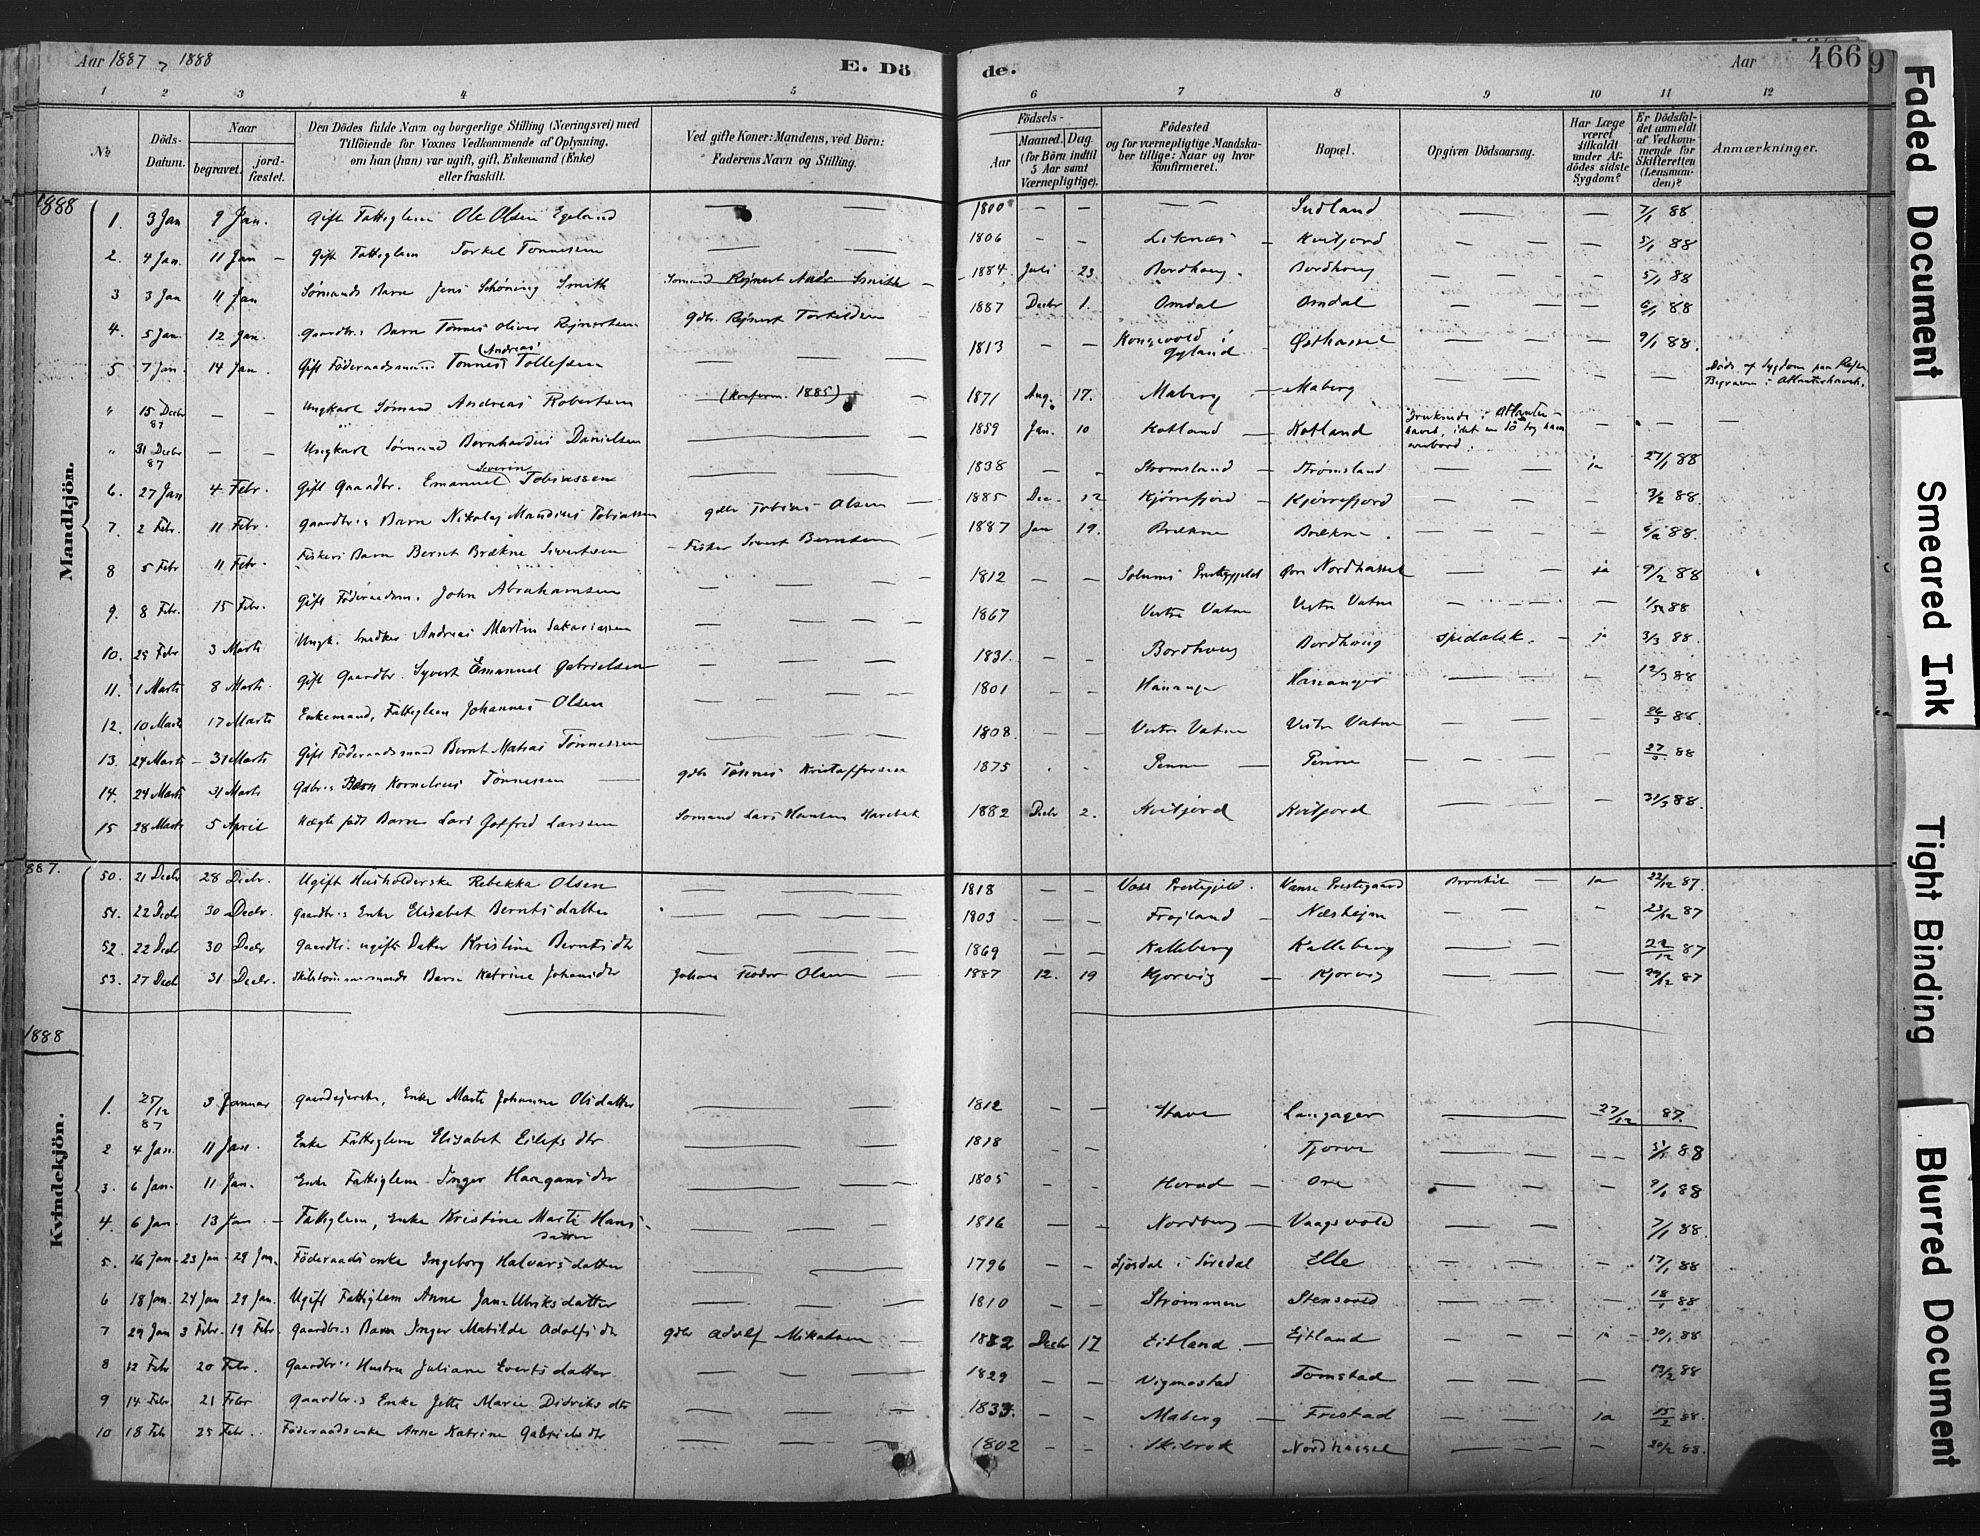 Aar 1887 & 1888
E. Dö
de.
Aar
466
9
1 2 3 4 5 6 7 8 9 10 11 12
No
Döds-Datum.
Naar
begravet.
jord-fæstet.
Den Dödes fulde Navn og borgerlige Stilling (Næringsvei) med
Tilföiende for Voxnes Vedkommende af Oplysning,
om han (hun) var ugift, gift, Enkemand (Enke)
eller fraskilt.
Ved gifte Koner: Mandens, ved Börn:
Faderens Navn og Stilling.
Födsels-
Aar
Maaned. Dag.
(for Börn indtil
5 Aar samt
Værnepligtige).
Födested
og for værnepligtige Mandska-
ber tillige: Naar og hvor
konfirmeret.
Bopæl.
Opgiven Dödsaarsag.
Har Læge
været
tilkaldt
under Af-
dödes sidste
Sygdom?
Er Dödsfal-
det anmeldt
af Vedkom-
mende for
Skifteretten
(Lensman-
den)?
Anmærkninger.
1888
Mandkjön.
1. 3 Jan 9 Jan. Gift Fattiglem Ole Olsen Egeland — — 1800 — — — — Sudland — — 7/1 88
2. 4 Jan. 11 Jan — Gift Fattiglem Torkel Tonnessen — — 1806 — — Liknæs — Kvitfjord — — — 5/1 88
3 3 Jan 11 Jan Sömands Barn Jens Schöning Smith Somand Rejnert Andr. Smith — 1884. Juli 23. Bordhoug. Bordhoug — — — 5/1 88
4. 5 Jan. 12 Jan. Gaardbr.s Barn Tönnes Oliver Rejnertsen. Gdbr. Rejnert Torkildsen — 1887 Decbr 1. Omdal Omdal — — — 6/1 88
5 7 Jan. 14 Jan. Gift Föderaadsmand Tonnes (Andreas) Tollefsen — — 1813 — — Kongevold i Gyland — Østhassel — — — 9/1 88.
" 15 Decbr 87 — — Ungkarl Sömand Andreas Robertsen (Konfirm. 1885) — 1871 Aug. 17. Maberg — Maberg — — — — Döde af Sygdom paa Rejsen
Begraven i Atlanterhavet.
" 31 Decbr 87 — — Ungkarl Sörmand Bernhardus Danielsen — 1859 Jan. 10 Kotland — Kotland Druknede i Atlanter-
havet, idet en Sö tog ham
overbord. — — —
6. 27 Jan 4 Febr. Gift Gaardbr. Emanuel (Severin) Tobiassen — — 1838 — — Stromsland — Strømsland — — ja 27/1 88
7. 2 Febr. 11 Febr. Gaardbr.s Barn Nikolaj Mandius Tobiassen Gdbr Tobias Olsen — 1885 Dec. 12 Kjörrefjord — Kjörrefjord — — — 3/2 88.
8 5 Febr 11 Febr. Fiskers Barn Bernt Brækne Sivertsen Fisker Sivert Berntsen — 1887 Jan 19. Brækne Brækne. — — — 6/2 88.
9. 8 Febr. 15 Febr. Gift Föderaadsm. John Abrahamsen — — — 1812 — — Solums Prestegjeld Nordhassel — — ja 9/2 88
10. 25 Febr 3 Marts Ungk. Snedker Andreas Martin Sakariassen — — — 1867 Vestre Vatne Vestre Vatne — — — 88
11. 1 Marts 8 Marts. Gift Gaardbr. Syvert Emanuel Gabrielsen — — — 1831. — — Bordhoug Bordhoug Spedalsk. — ja 3/3 88.
12. 10 Marts 17 Marts Enkemand, Fattiglem Johannes Olsen — — — 1801 — — Hananger Hananger — — — 12/3 88
13. 24 Marts — 31 Marts Gift Föderaadsmand Bernt Matias Tönnessen — — — 1808. — — Vestre Vatne Vestre Vatne — — — 26/3 88.
14. 24 Marts 31 Marts Gdbr.s Barn Kornelius Tönnessen — Gdbr Tönnes Kristoffersen 1875 . - Penne — Penne — — — 27/3. 88
15 28 Marts 5 April Uægte födt Barn Lars Gotfred Larssen Somand Lars Hansen Harebak 1882 Decbr 2. Kvitfjord Kvitfjord — — — 31/3 88.
1887.
50. 21 Decbr 28 Decbr. Ugift Husholderske Rebekka Olsen — — 1818 — — Voss Prestegjeld. Vanse Prestegaard Bronkit — ja 22/12 87.
51. 22 Decbr 30 Decbr. Gaardbr.s Enke Elisabet Berntsdatter — — — 1803 — — Frojland — Næshejm — — — 23/12 87
52. 22 Decbr 30 Decbr Gaardbr. ugifte Datter Kristine Berntsdtr — — — 1869 — — Kalleberg Kalleberg — — — 22/12 87
53. 27 Decbr 31 Decbr. Skibstömmermands Barn Katrine Johansdtr Johan Teodor Olsen — 1887 12. 19 Kjorvig — Kjorvig — — — 29/12 87
1888
Kvindekjön.
1. 25/12 87 3 Januar Gaardejerske, Enke Marte Johanne Olsdatter — — — 1812 — — Stave Langager — 27/12 87.
2 4 Jan. 11 Jan. Enke Fattiglem Elisabet Eilefsdtr — — — 1818 — — Tjorve — — — 5/1 88
3. 6 Jan. 11 Jan. Enke Fattiglem Inger Haagansdtr — — — 1805 — — Herad — Ore — — — 9/1 88
4. 6 Jan. 13 Jan — Fattiglem, Enke Kristine Marte Hans-
datter — — — 1816 — — Nordberg — Vaagsvold — — — 7/1 88.
5. 16 Jan. 23 Jan 29 Jan. Föderaadsenke Ingeborg Halvarsdatter — — 1796 — — Ljosdal i Siredal Elle — — — 17/1 88
6 18 Jan. 24 Jan 29 Jan. Ugift Fattiglem Anne Jane Ulriksdatter — — — 1810 — — Strømmen Stensvold — — — 18/1 88
7 29 Jan 3 Febr. 19 Febr Gaardbr.s Barn Inger Matilde Adolfsdtr Gdbr Adolf Mikalsen — 1882 Decbr 17 Eitland. — Ejtland — — 30/1 88
8 12 Febr 20 Febr. Gaardbr.s Hustru Juliane Evertsdatter. — — — 1829 — — Vigmostad Tomstad — — — 13/2 88
9 14 Febr 21 Febr Gaardbr.s Enke Jette Marie Didriksdtr — — — 1833. — — Maberg — Frestad — — ja 15/2 88.
10 18 Febr 25 Febr. Föderaadsenke Anne Katrine Gabrielsdtr — — — 1802 — — Skibrok Nordhassel — — — 20/2 88.
Faded Document
Smeared Ink
Tight Binding
Blurred Document